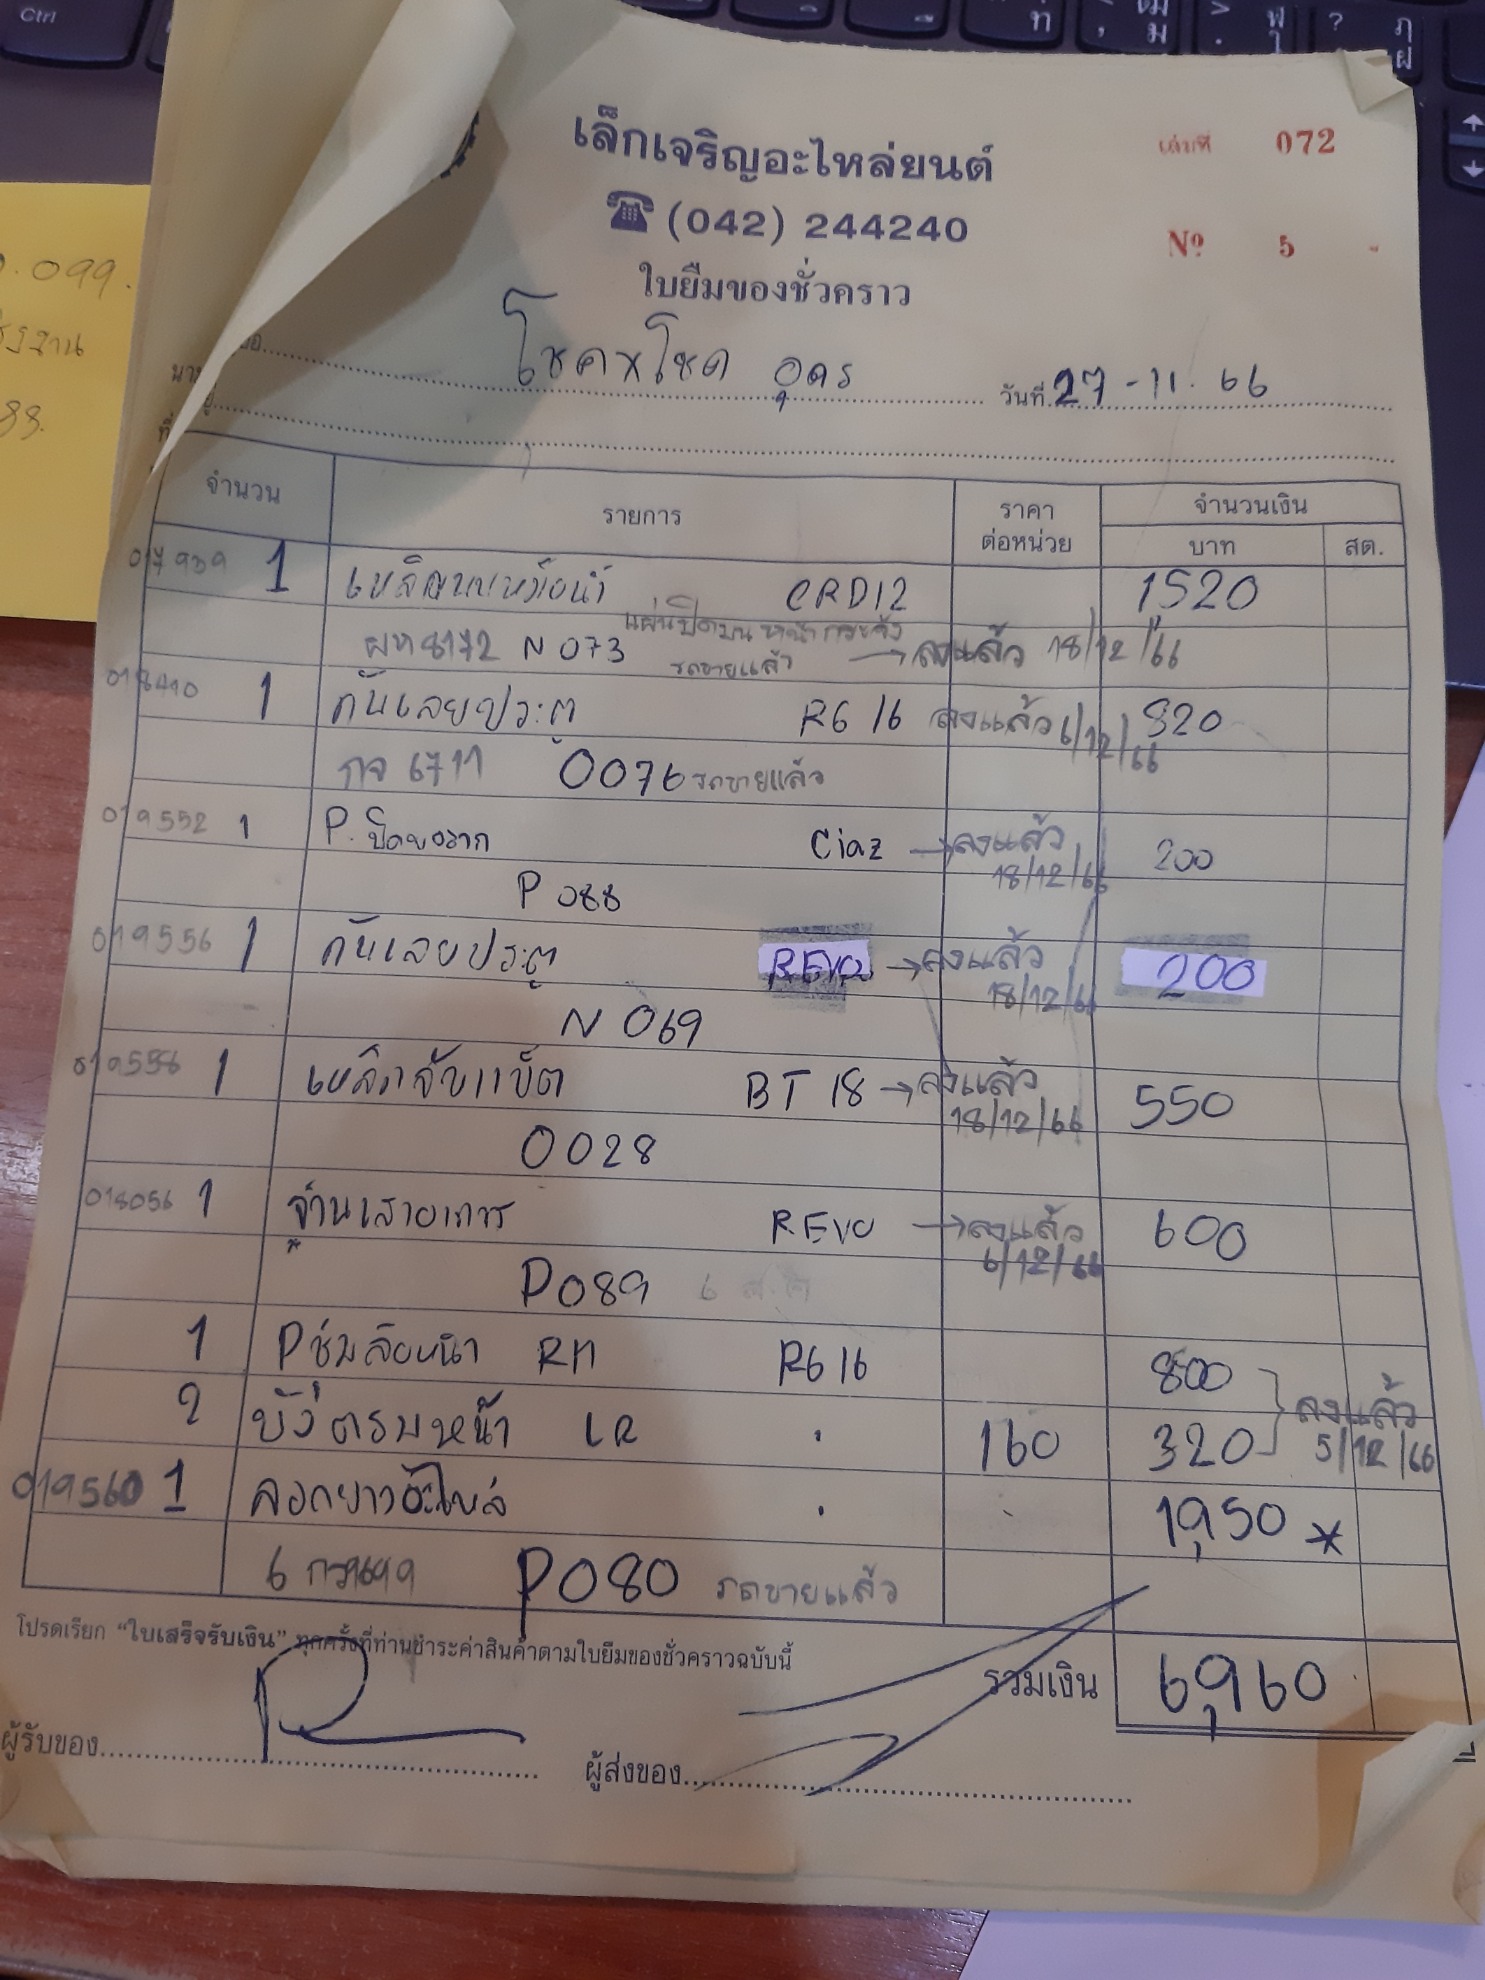 Ctrl
เล็กเจริญอะไหล่ยนต์
เล่มที่ 072
☎ (042) 244240
Nº 5
ใบยืมของชั่วคราว
โชคxโชค อุดร วันที่ 27-11.66
099.
88.
จำนวน รายการ ราคาต่อหน่วย จำนวนเงิน
บาท สต.
017939 1 CRD12 1,520
แผ่นปิดบนหน้ากระจัง
8172 N 073 รถขายแล้ว → ลงแล้ว 18/12/66
1 กันเลยประตู R6 16 ลงแล้ว 6/12/66 820
กจ 6711 0076 รถขายแล้ว
019552 1 P. Ciaz → ลงแล้ว 18/12/66 200
P 088
019556 1 กันเลยประตู REVO → ลงแล้ว 18/12/66 200
N 069
019558 1 เหล็กจับแบ็ต BT 18 → ลงแล้ว 18/12/66 550
0028
018056 1 REVO → ลงแล้ว 6/12/66 600
P089
1 P ซุ้มล้อหน้า RH R6 16 800
2 บังตรมหน้า LR " 160 320 ลงแล้ว 5/12/66
019560 1 ลอกยางอะไหล่ " 1,950 *
P080 รถขายแล้ว
โปรดเรียก "ใบเสร็จรับเงิน" ทุกครั้งที่ท่านชำระค่าสินค้าตามใบยืมของชั่วคราวฉบับนี้
รวมเงิน 6,960
ผู้รับของ ผู้ส่งของ